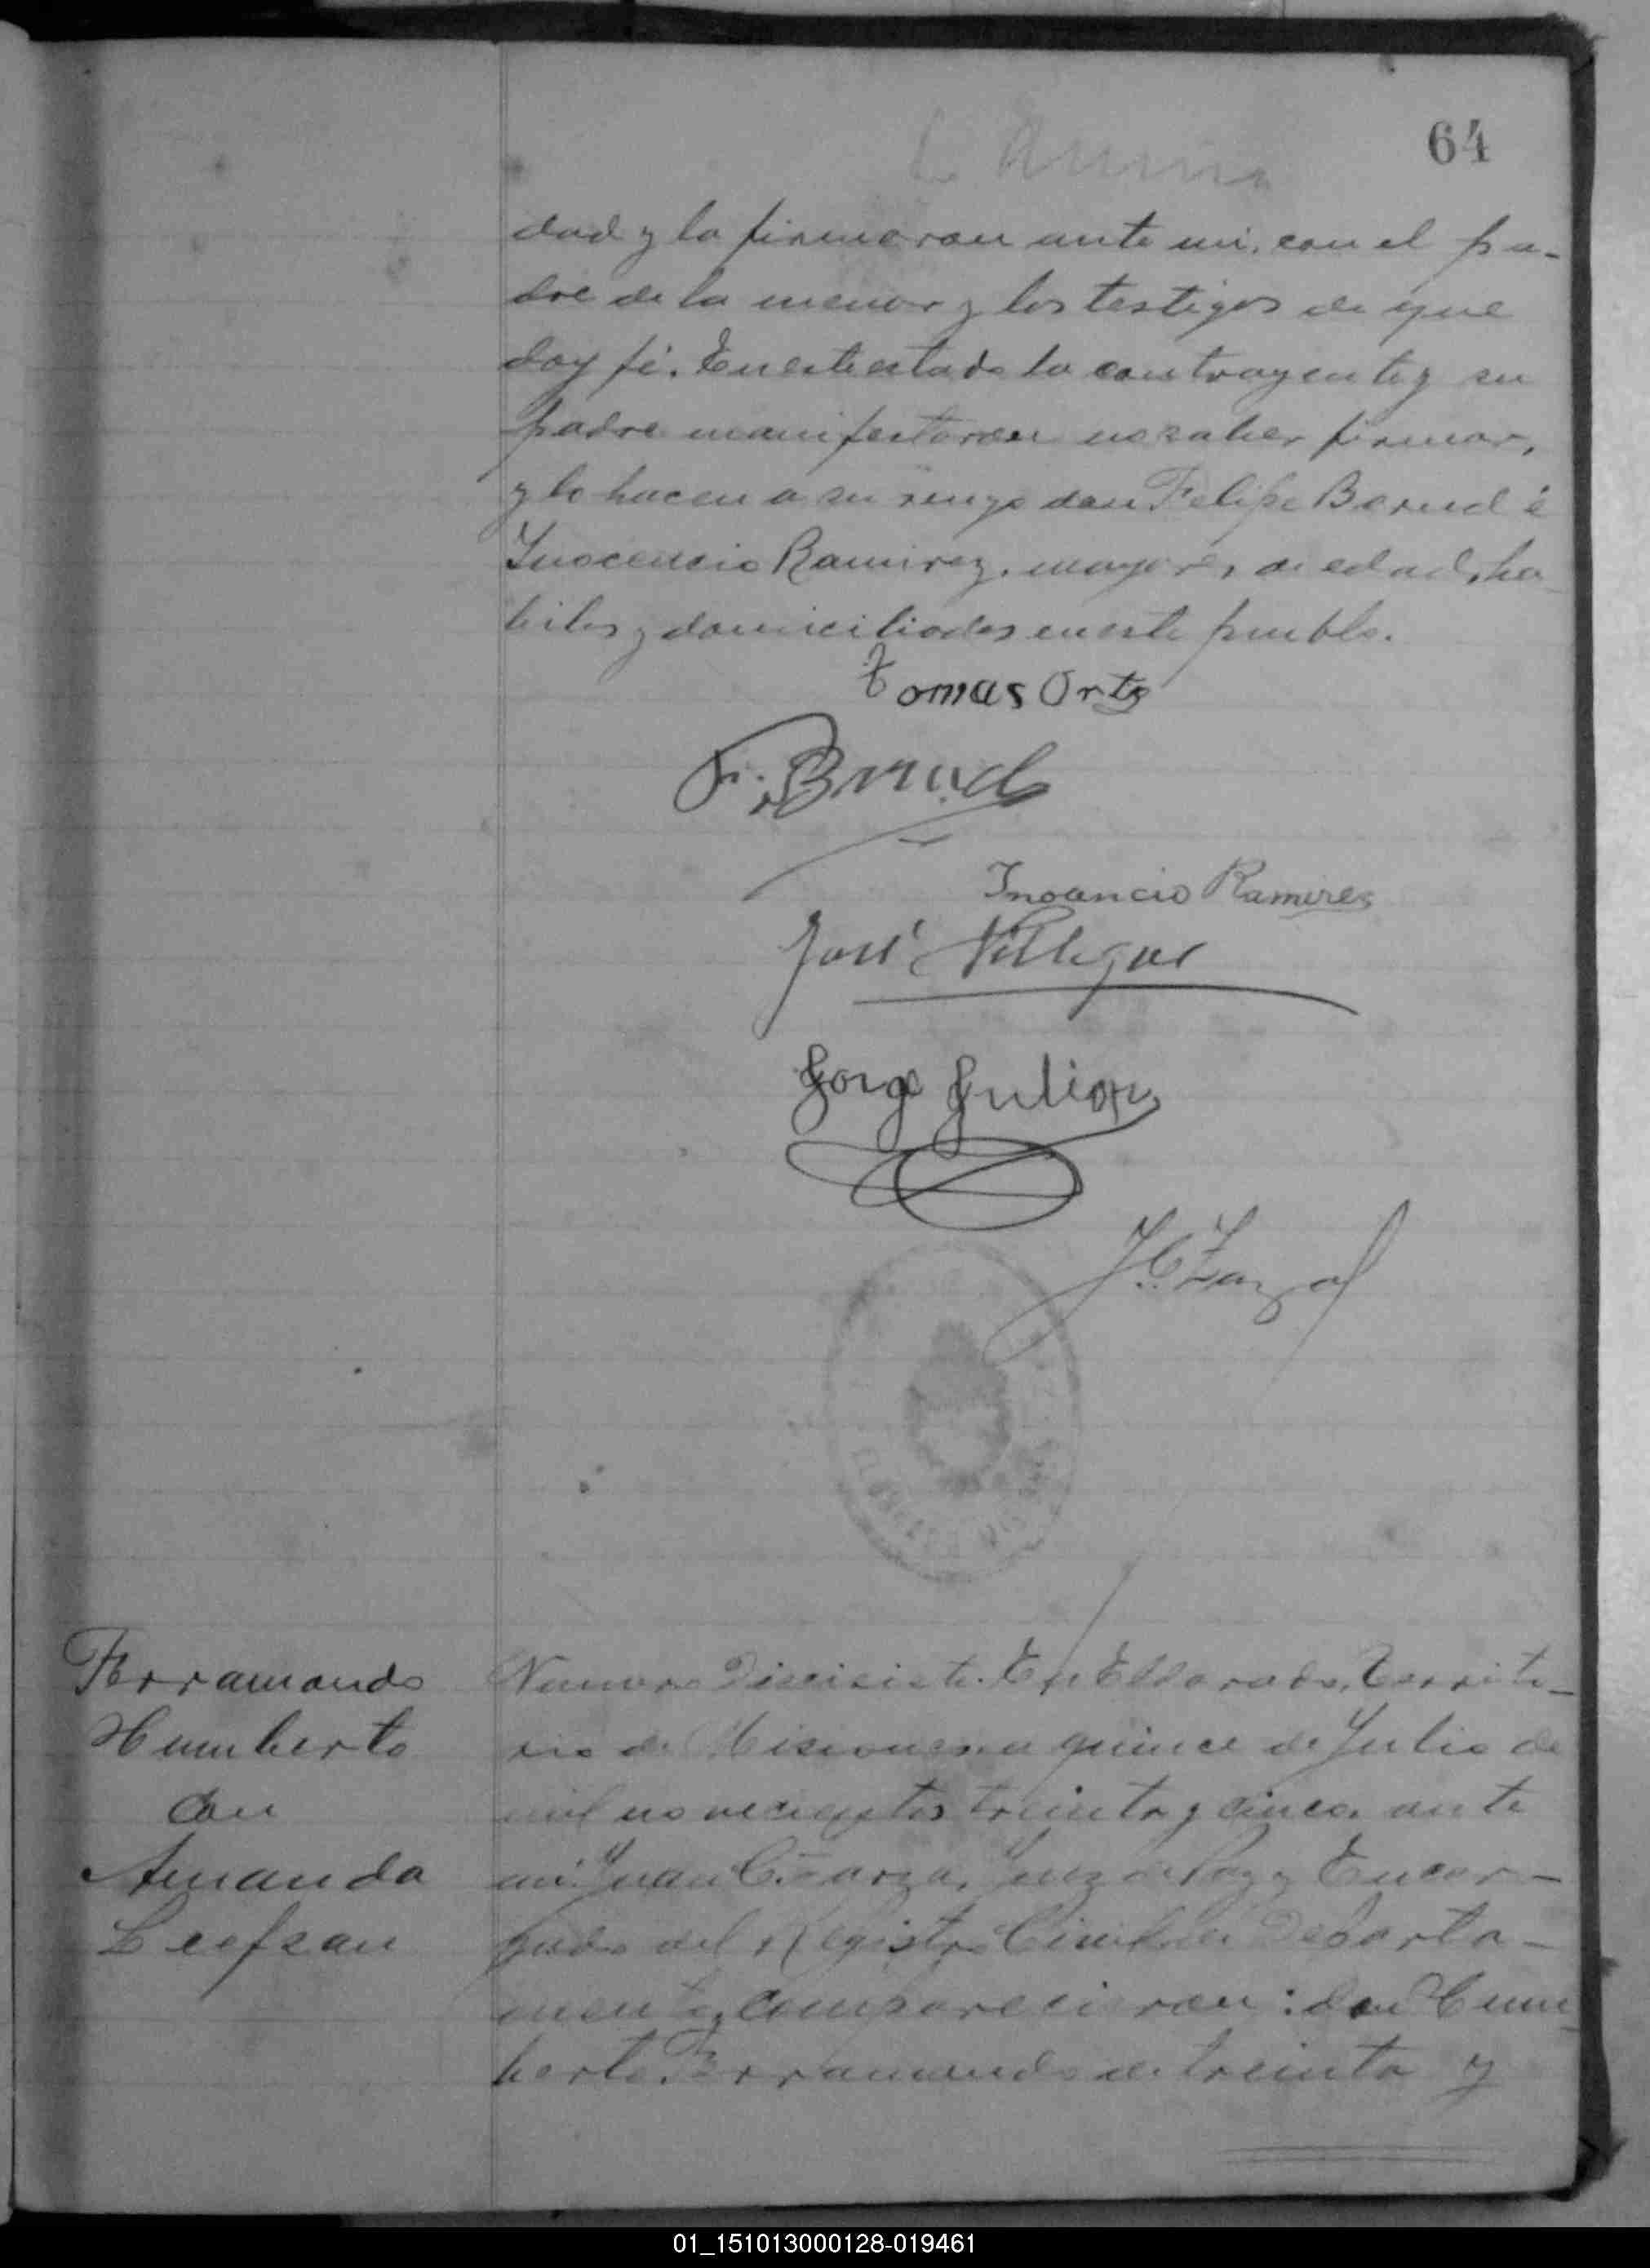 64
dad y la firmaron ante mi, con el pa-
dre de la menor y los testigos de que
doy fé. En este estado la contrayente y su
padre manifestaron no saber firmar,
y lo hacen a su ruego don Felipe Bernd é
Inocencio Ramirez, mayores de edad, ha-
biles y domiciliados en este pueblo.
tomas Ortz
F. Bernd
Inoancio Ramires
José Villegas
Jorge Julian
J. C. Zarza
Ferramondo
Humberto
con
Amanda
Numero Diecisiete. En Eldorado, Territo-
rio de Misiones a quince de Julio de
mil novecientos treinta y cinco, ante
mi Juan C. Zarza, Juez de Paz y Encar-
gado del Registro Civil del Departa-
mento, comparecieron: don Hum-
berto Ferramondo de treinta y
01_151013000128-019461